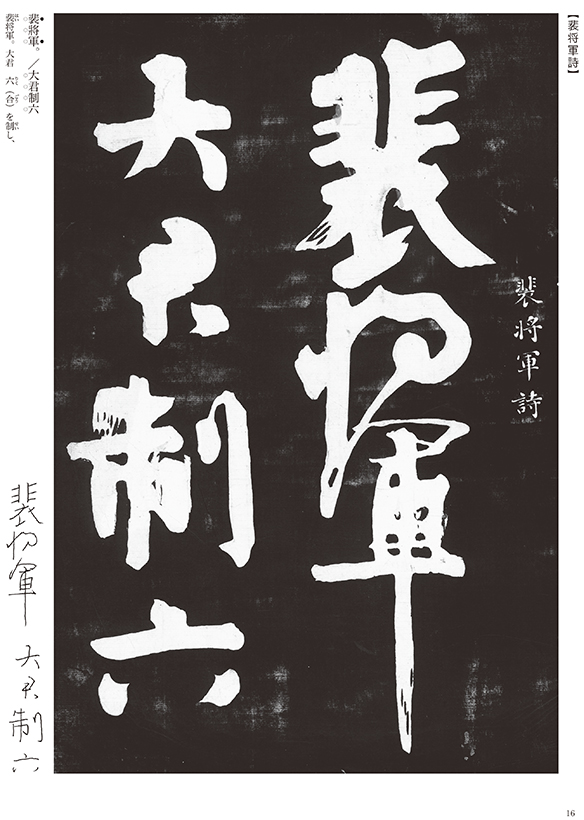 【裴将軍詩】
裴將軍詩
裴將軍
大君制六
裴將軍。／大君制六
裴将軍。大君 六（合）を制し、
裴將軍 大君制六
16